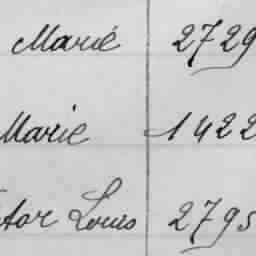 Marié 2729
Marie 1422
tor Louis 2795